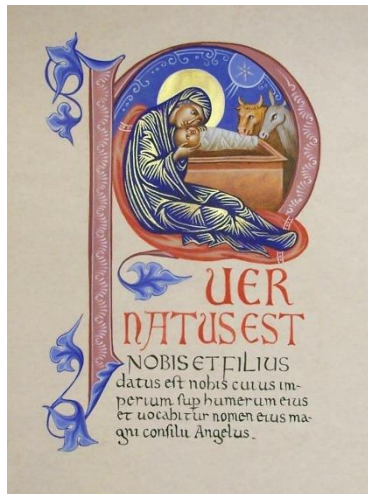 PUER
NATUS EST
NOBIS ET FILIUS
datus est nobis cuius im-
perium sup humerum eius
et uocabitur nomen eius ma-
gni consilii Angelus.